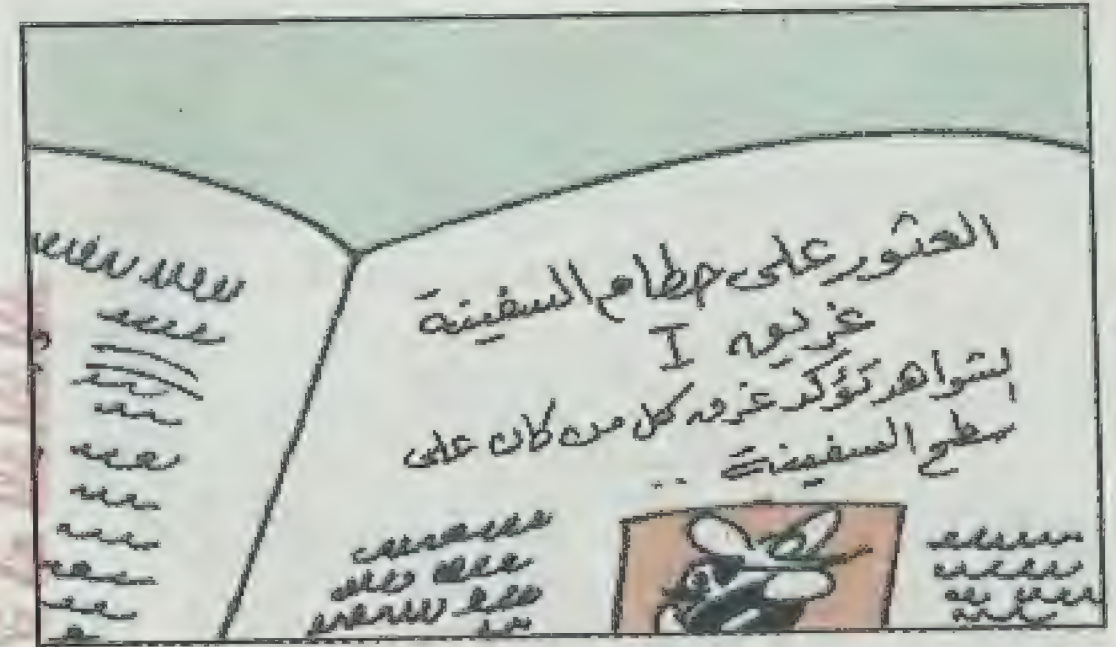 العثور على حطام السفينة
غريق I
الشواهد تؤكد غرق كل من كان على
سطح السفينة ..